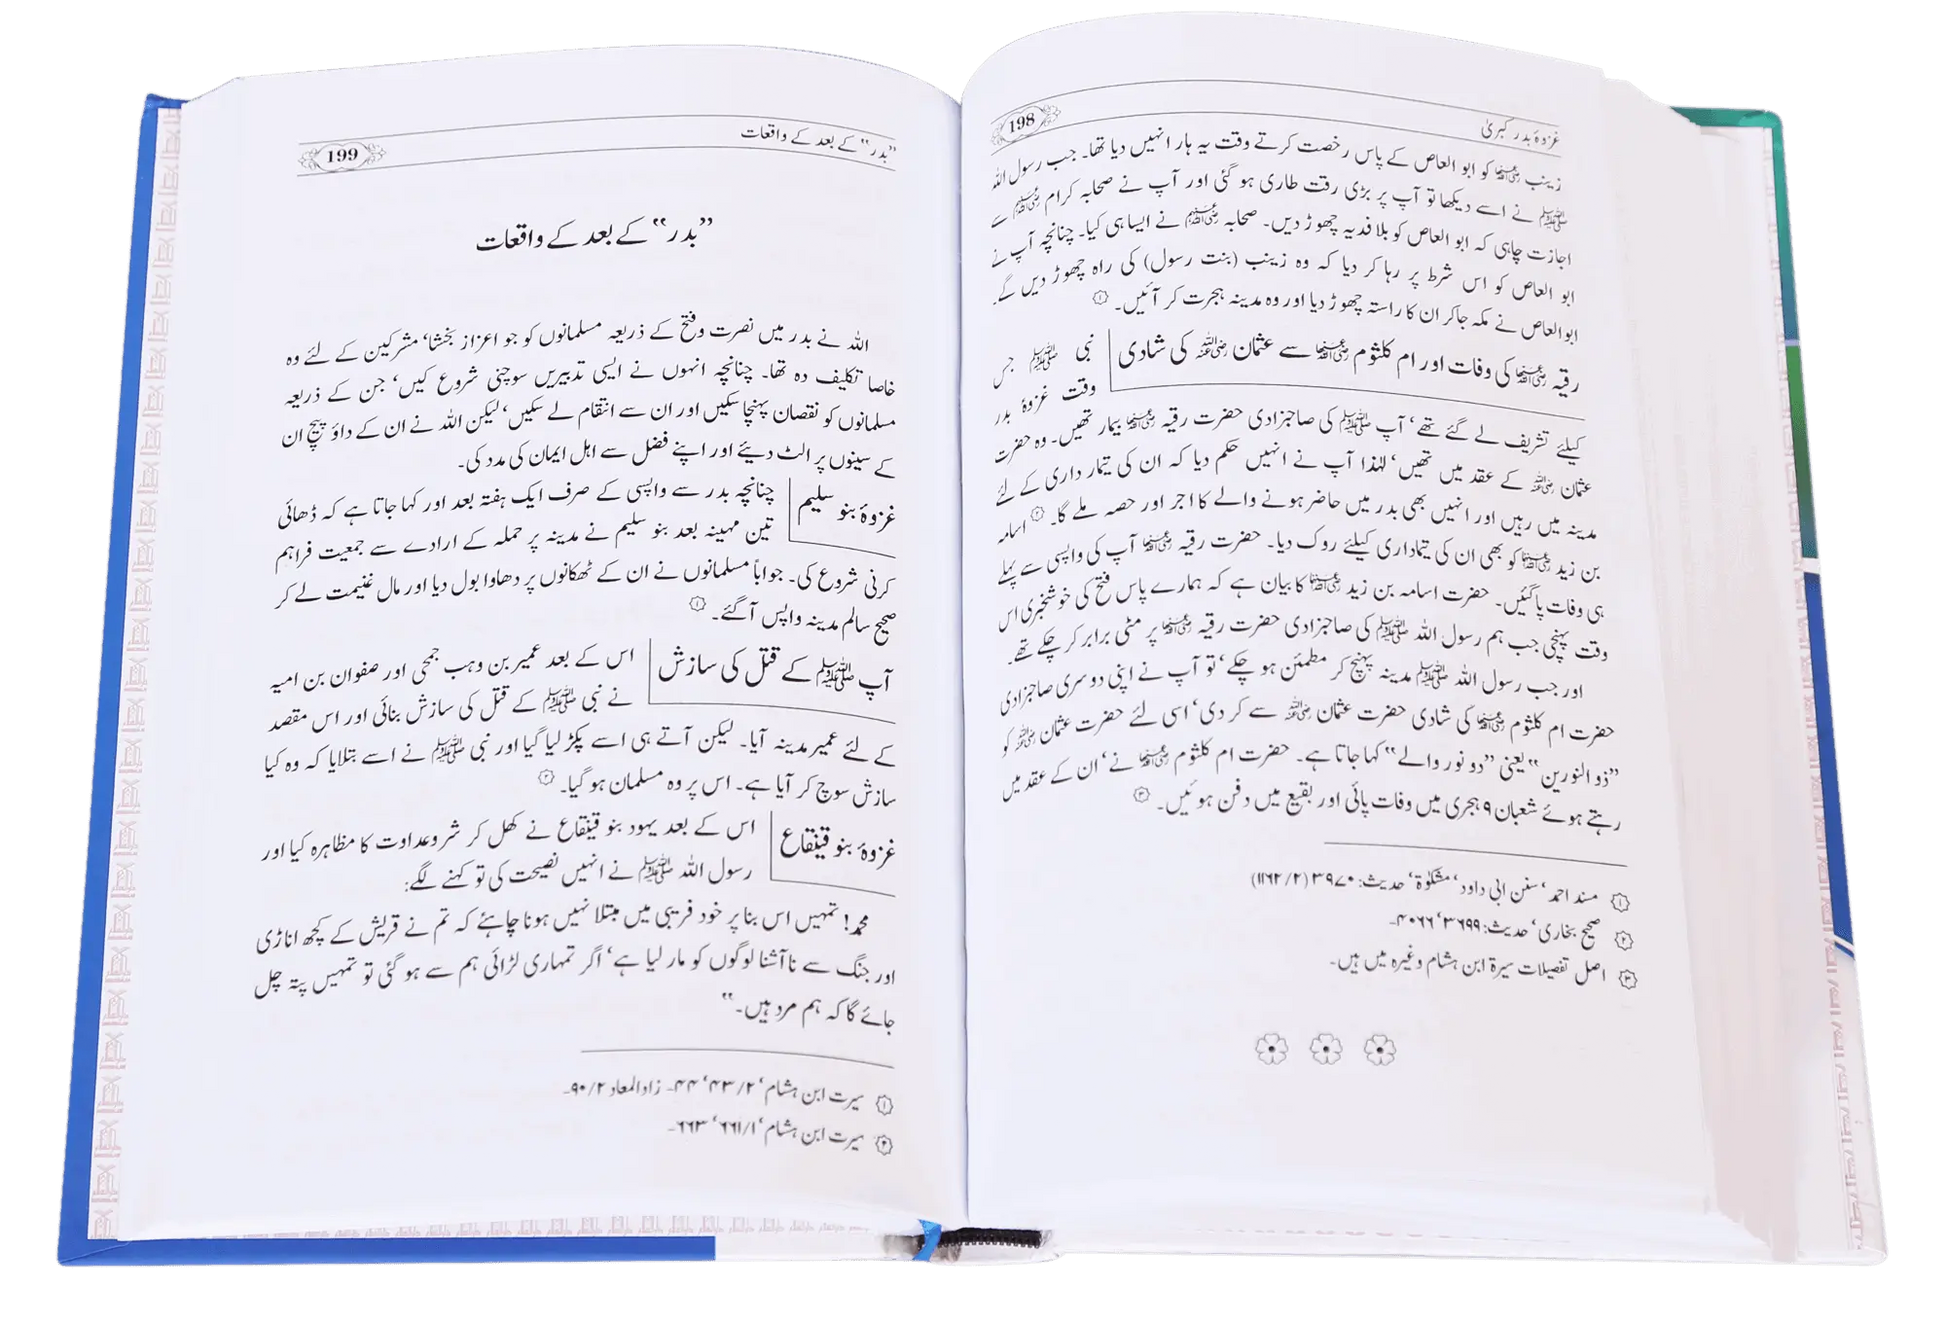 غزوۂ بدر کبریٰ
198
زینب رضی اللہ عنہا کو ابو العاص کے پاس رخصت کرتے وقت یہ ہار انہیں دیا تھا۔ جب رسول اللہ
ﷺ نے اسے دیکھا تو آپ پر بڑی رقت طاری ہو گئی اور آپ نے صحابہ کرام رضی اللہ عنہم سے
اجازت چاہی کہ ابو العاص کو بلا فدیہ چھوڑ دیں۔ صحابہ رضی اللہ عنہم نے ایسا ہی کیا۔ چنانچہ آپ نے
ابو العاص کو اس شرط پر رہا کر دیا کہ وہ زینب (بنت رسول) کی راہ چھوڑ دیں گے۔
ابوالعاص نے مکہ جاکر ان کا راستہ چھوڑ دیا اور وہ مدینہ ہجرت کر آئیں۔ ۱
رقیہ رضی اللہ عنہا کی وفات اور ام کلثوم رضی اللہ عنہا سے عثمان رضی اللہ عنہ کی شادی
نبی ﷺ جس
وقت غزوۂ بدر
کیلئے تشریف لے گئے تھے‘ آپ ﷺ کی صاحبزادی حضرت رقیہ رضی اللہ عنہا بیمار تھیں۔ وہ حضرت
عثمان رضی اللہ عنہ کے عقد میں تھیں‘ لہٰذا آپ نے انہیں حکم دیا کہ ان کی تیمار داری کے لئے
مدینہ میں رہیں اور انہیں بھی بدر میں حاضر ہونے والے کا اجر اور حصہ ملے گا۔ ۲ اسامہ
بن زید رضی اللہ عنہ کو بھی ان کی تیمارداری کیلئے روک دیا۔ حضرت رقیہ رضی اللہ عنہا آپ کی واپسی سے پہلے
ہی وفات پاگئیں۔ حضرت اسامہ بن زید رضی اللہ عنہما کا بیان ہے کہ ہمارے پاس فتح کی خوشخبری اس
وقت پہنچی جب ہم رسول اللہ ﷺ کی صاحبزادی حضرت رقیہ رضی اللہ عنہا پر مٹی برابر کر چکے تھے۔
اور جب رسول اللہ ﷺ مدینہ پہنچ کر مطمئن ہو چکے‘ تو آپ نے اپنی دوسری صاحبزادی
حضرت ام کلثوم رضی اللہ عنہا کی شادی حضرت عثمان رضی اللہ عنہ سے کر دی‘ اسی لئے حضرت عثمان رضی اللہ عنہ کو
”ذو النورین“ یعنی ”دو نور والے“ کہا جاتا ہے۔ حضرت ام کلثوم رضی اللہ عنہا نے‘ ان کے عقد میں
رہتے ہوئے شعبان ۹ ہجری میں وفات پائی اور بقیع میں دفن ہوئیں۔ ۳
۱ مسند احمد‘ سنن ابی داود‘ مشکوٰۃ‘ حدیث: ۳۹۷۰ (۱۱۶۲/۲)
۲ صحیح بخاری‘ حدیث: ۳۶۹۹‘ ۴۰۶۶۔
۳ اصل تفصیلات سیرۃ ابن ہشام وغیرہ میں ہیں۔
”بدر“ کے بعد کے واقعات
199
”بدر“ کے بعد کے واقعات
اللہ نے بدر میں نصرت وفتح کے ذریعہ مسلمانوں کو جو اعزاز بخشا‘ مشرکین کے لئے وہ
خاصا تکلیف دہ تھا۔ چنانچہ انہوں نے ایسی تدبیریں سوچنی شروع کیں‘ جن کے ذریعہ
مسلمانوں کو نقصان پہنچا سکیں اور ان سے انتقام لے سکیں‘ لیکن اللہ نے ان کے داؤ پیچ ان
کے سینوں پر الٹ دیئے اور اپنے فضل سے اہل ایمان کی مدد کی۔
غزوۂ بنو سلیم
چنانچہ بدر سے واپسی کے صرف ایک ہفتہ بعد اور کہا جاتا ہے کہ ڈھائی
تین مہینہ بعد بنو سلیم نے مدینہ پر حملہ کے ارادے سے جمعیت فراہم
کرنی شروع کی۔ جواباً مسلمانوں نے ان کے ٹھکانوں پر دھاوا بول دیا اور مال غنیمت لے کر
صحیح سالم مدینہ واپس آ گئے۔ ۱
آپ ﷺ کے قتل کی سازش
اس کے بعد عمیر بن وہب جمحی اور صفوان بن امیہ
نے نبی ﷺ کے قتل کی سازش بنائی اور اس مقصد
کے لئے عمیر مدینہ آیا۔ لیکن آتے ہی اسے پکڑ لیا گیا اور نبی ﷺ نے اسے بتلایا کہ وہ کیا
سازش سوچ کر آیا ہے۔ اس پر وہ مسلمان ہو گیا۔ ۲
غزوۂ بنو قینقاع
اس کے بعد یہود بنو قینقاع نے کھل کر شروعداوت کا مظاہرہ کیا اور
رسول اللہ ﷺ نے انہیں نصیحت کی تو کہنے لگے:
محمد! تمہیں اس بنا پر خود فریبی میں مبتلا نہیں ہونا چاہئے کہ تم نے قریش کے کچھ اناڑی
اور جنگ سے ناآشنا لوگوں کو مار لیا ہے‘ اگر تمہاری لڑائی ہم سے ہو گئی تو تمہیں پتہ چل
جائے گا کہ ہم مرد ہیں۔“
۱ سیرت ابن ہشام‘ ۴۳/۲‘ ۴۴۔ زاد المعاد ۹۰/۲۔
۲ سیرت ابن ہشام‘ ۶۶۱/۱‘ ۶۶۳۔